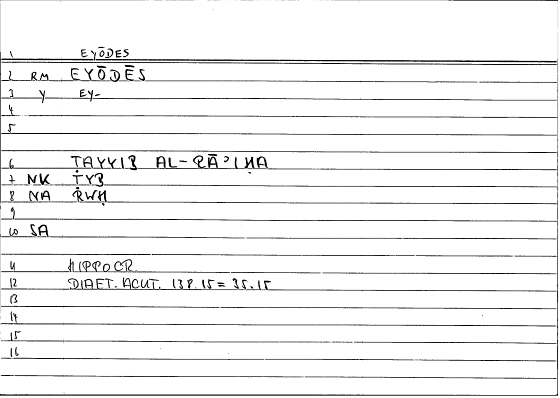 1 EYŌDES
2 RM EYŌDĒS
3 Y EY-
4
5
6 ṬAYYIB AL-RĀʾIḤA
7 NK ṬYB
8 NA RWḤ
9
10 SA
11 HIPPOCR.
12 DIAET. ACUT. 138.15 = 35.15
13
14
15
16